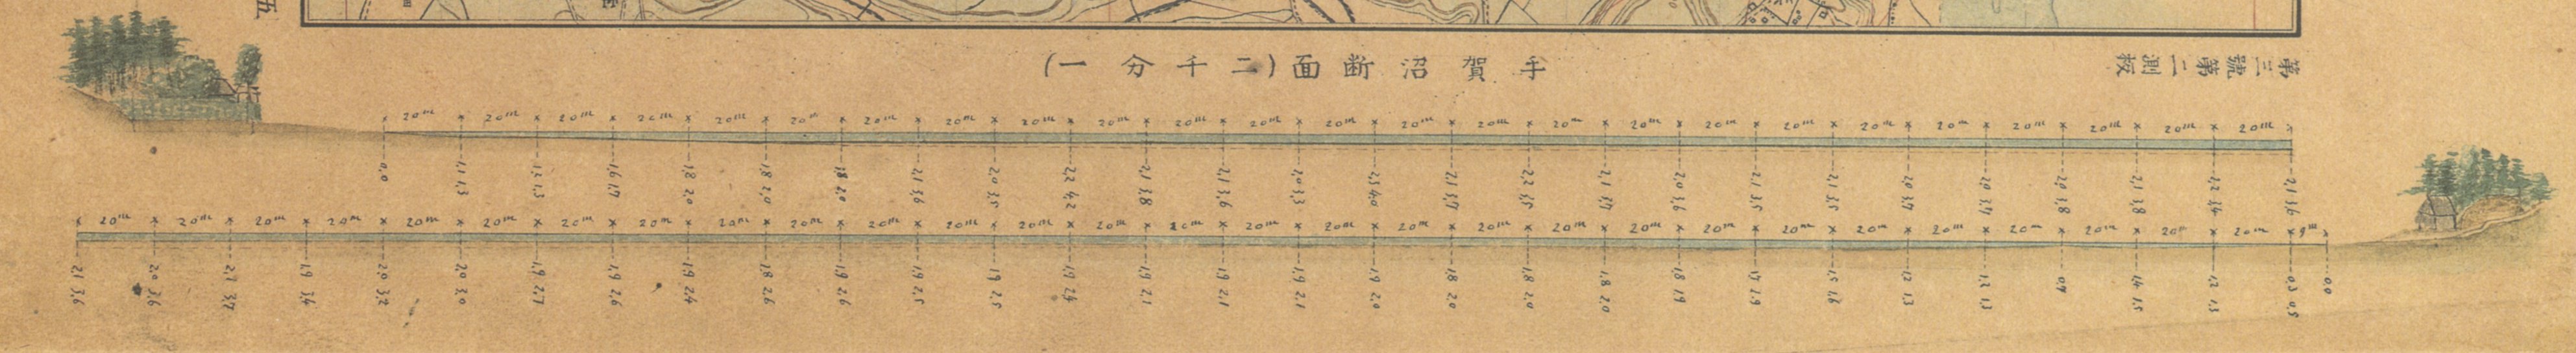 五
手賀沼断面(二千分一)
第三號第二測板
20m 20m 20m 20m 20m 20m 20m 20m 20m 20m 20m 20m 20m 20m 20m 20m 20m 20m 20m 20m 20m 20m 20m 20m 20m
0,0 1,1 1,3 1,3 1,3 1,6 1,7 1,8 2,0 1,8 2,0 1,8 2,0 2,1 3,6 2,0 3,5 2,2 4,2 2,1 3,8 2,1 3,6 2,0 3,3 2,5 4,0 2,1 3,7 2,2 3,5 2,1 3,7 2,0 3,6 2,1 3,5 2,1 3,5 2,0 3,7 2,0 3,7 2,0 3,8 2,1 3,8 2,2 3,4 2,1 3,6
20m 20m 20m 20m 20m 20m 20m 20m 20m 20m 20m 20m 20m 20m 20m 20m 20m 20m 20m 20m 20m 20m 20m 20m 20m 20m 20m 20m 20m 9m
2,1 3,6 2,0 3,6 2,1 3,7 1,9 3,4 2,0 3,2 2,0 3,0 1,9 2,7 1,9 2,6 1,9 2,4 1,8 2,6 1,9 2,6 1,9 2,5 1,9 2,5 1,9 2,4 1,9 2,1 1,9 2,1 1,9 2,1 1,9 2,0 1,8 2,0 1,8 2,0 1,8 2,0 1,8 1,9 1,7 1,9 1,5 1,6 1,2 1,3 1,3 1,3 0,7 1,4 1,5 1,2 1,3 0,3 0,5 0,0